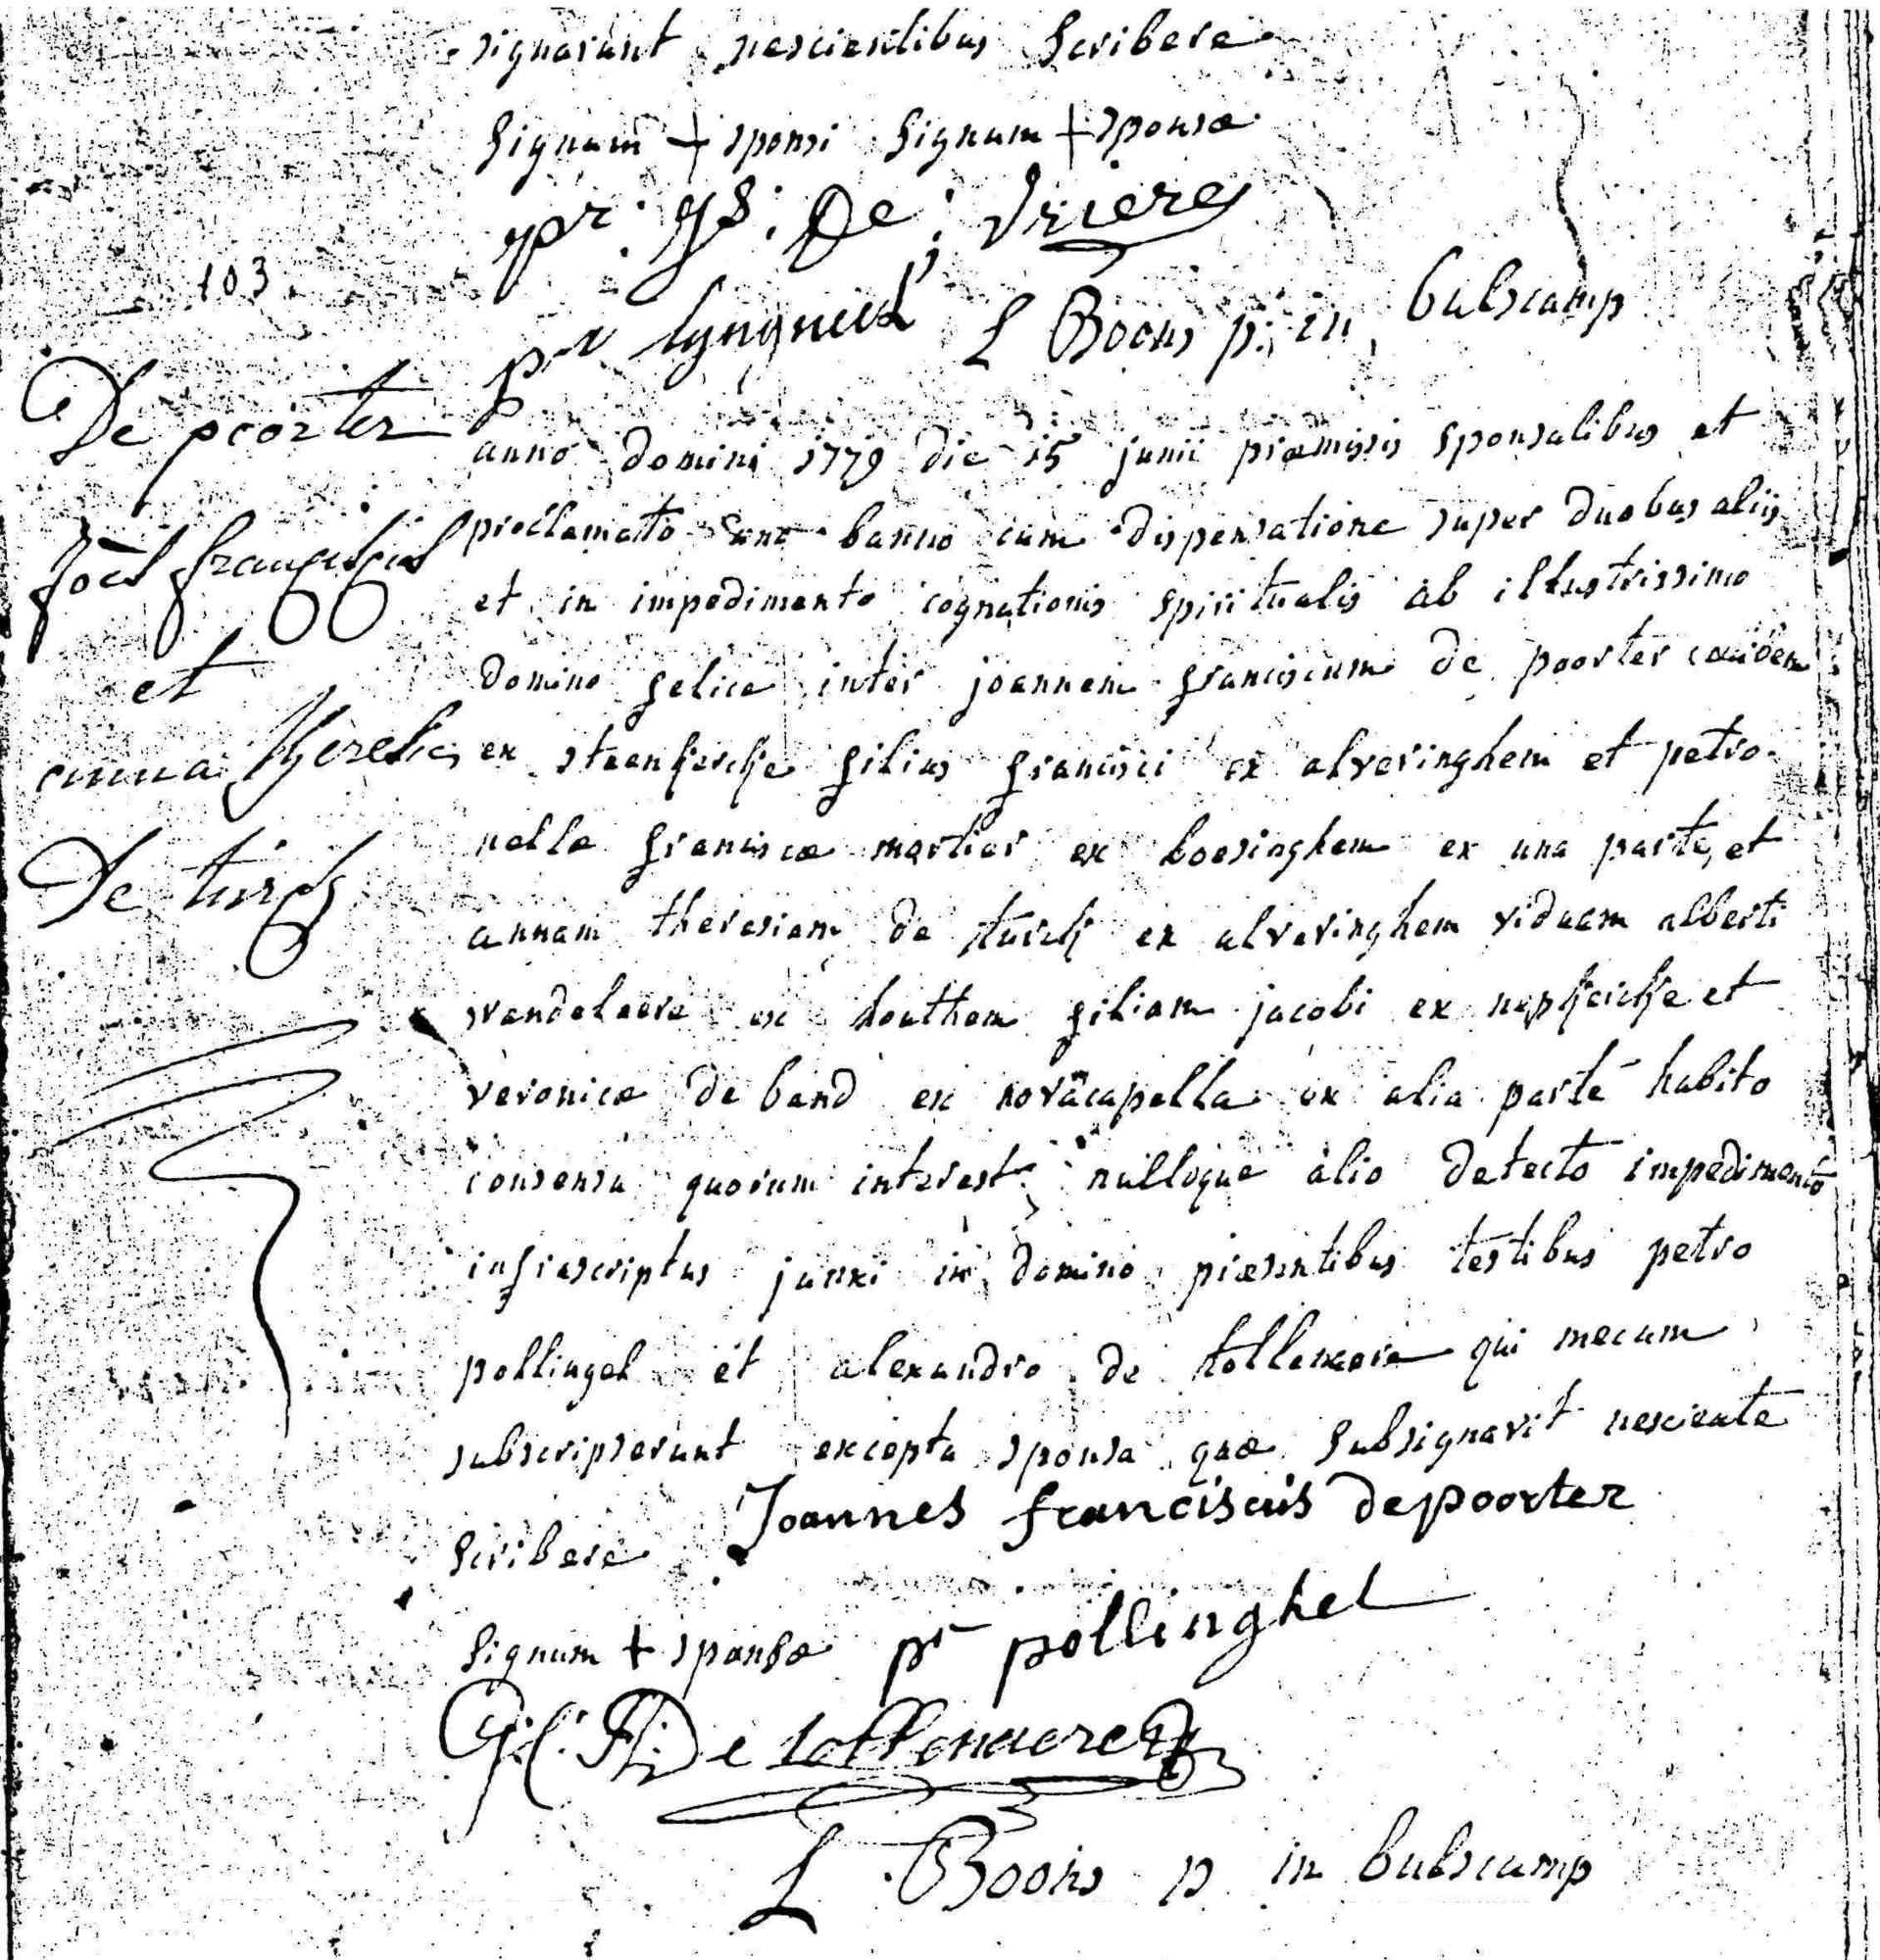 signarunt nescientibus scribere
signum + sponsi signum + sponsæ
pr: js: De: Vriere
103
L Boens p: in bulscamp
De poorter
anno domini 1779 die 15 junii præmissis sponsalibus et
proclamato uno banno cum dispensatione super duobus aliis
joës franciscus
et in impedimento cognationis spiritualis ab illustrissimo
et
domino felice inter joannem franciscum de poorter
anna theresia
ex steenkercke filius francisci ex alveringhem et petro-
nellæ franciscæ mortier ex boesinghem ex una parte, et
De turck
annam theresiam de turck ex alveringhem viduam alberti
vandelaere ex houthem filiam jacobi ex niepkercke et
veronicæ de band ex novacapella ex alia parte habito
consensu quorum interest, nulloque alio detecto impedimento
infrascriptus junxi in domino præsentibus testibus petro
pollingel et alexandro de tollenaere qui mecum
subscripserunt excepta sponsa quæ subsignavit nesciente
scribere Joannes franciscus depoorter
signum + sponsæ pr pollinghel
De tollenaere
L. Boens p in bulscamp